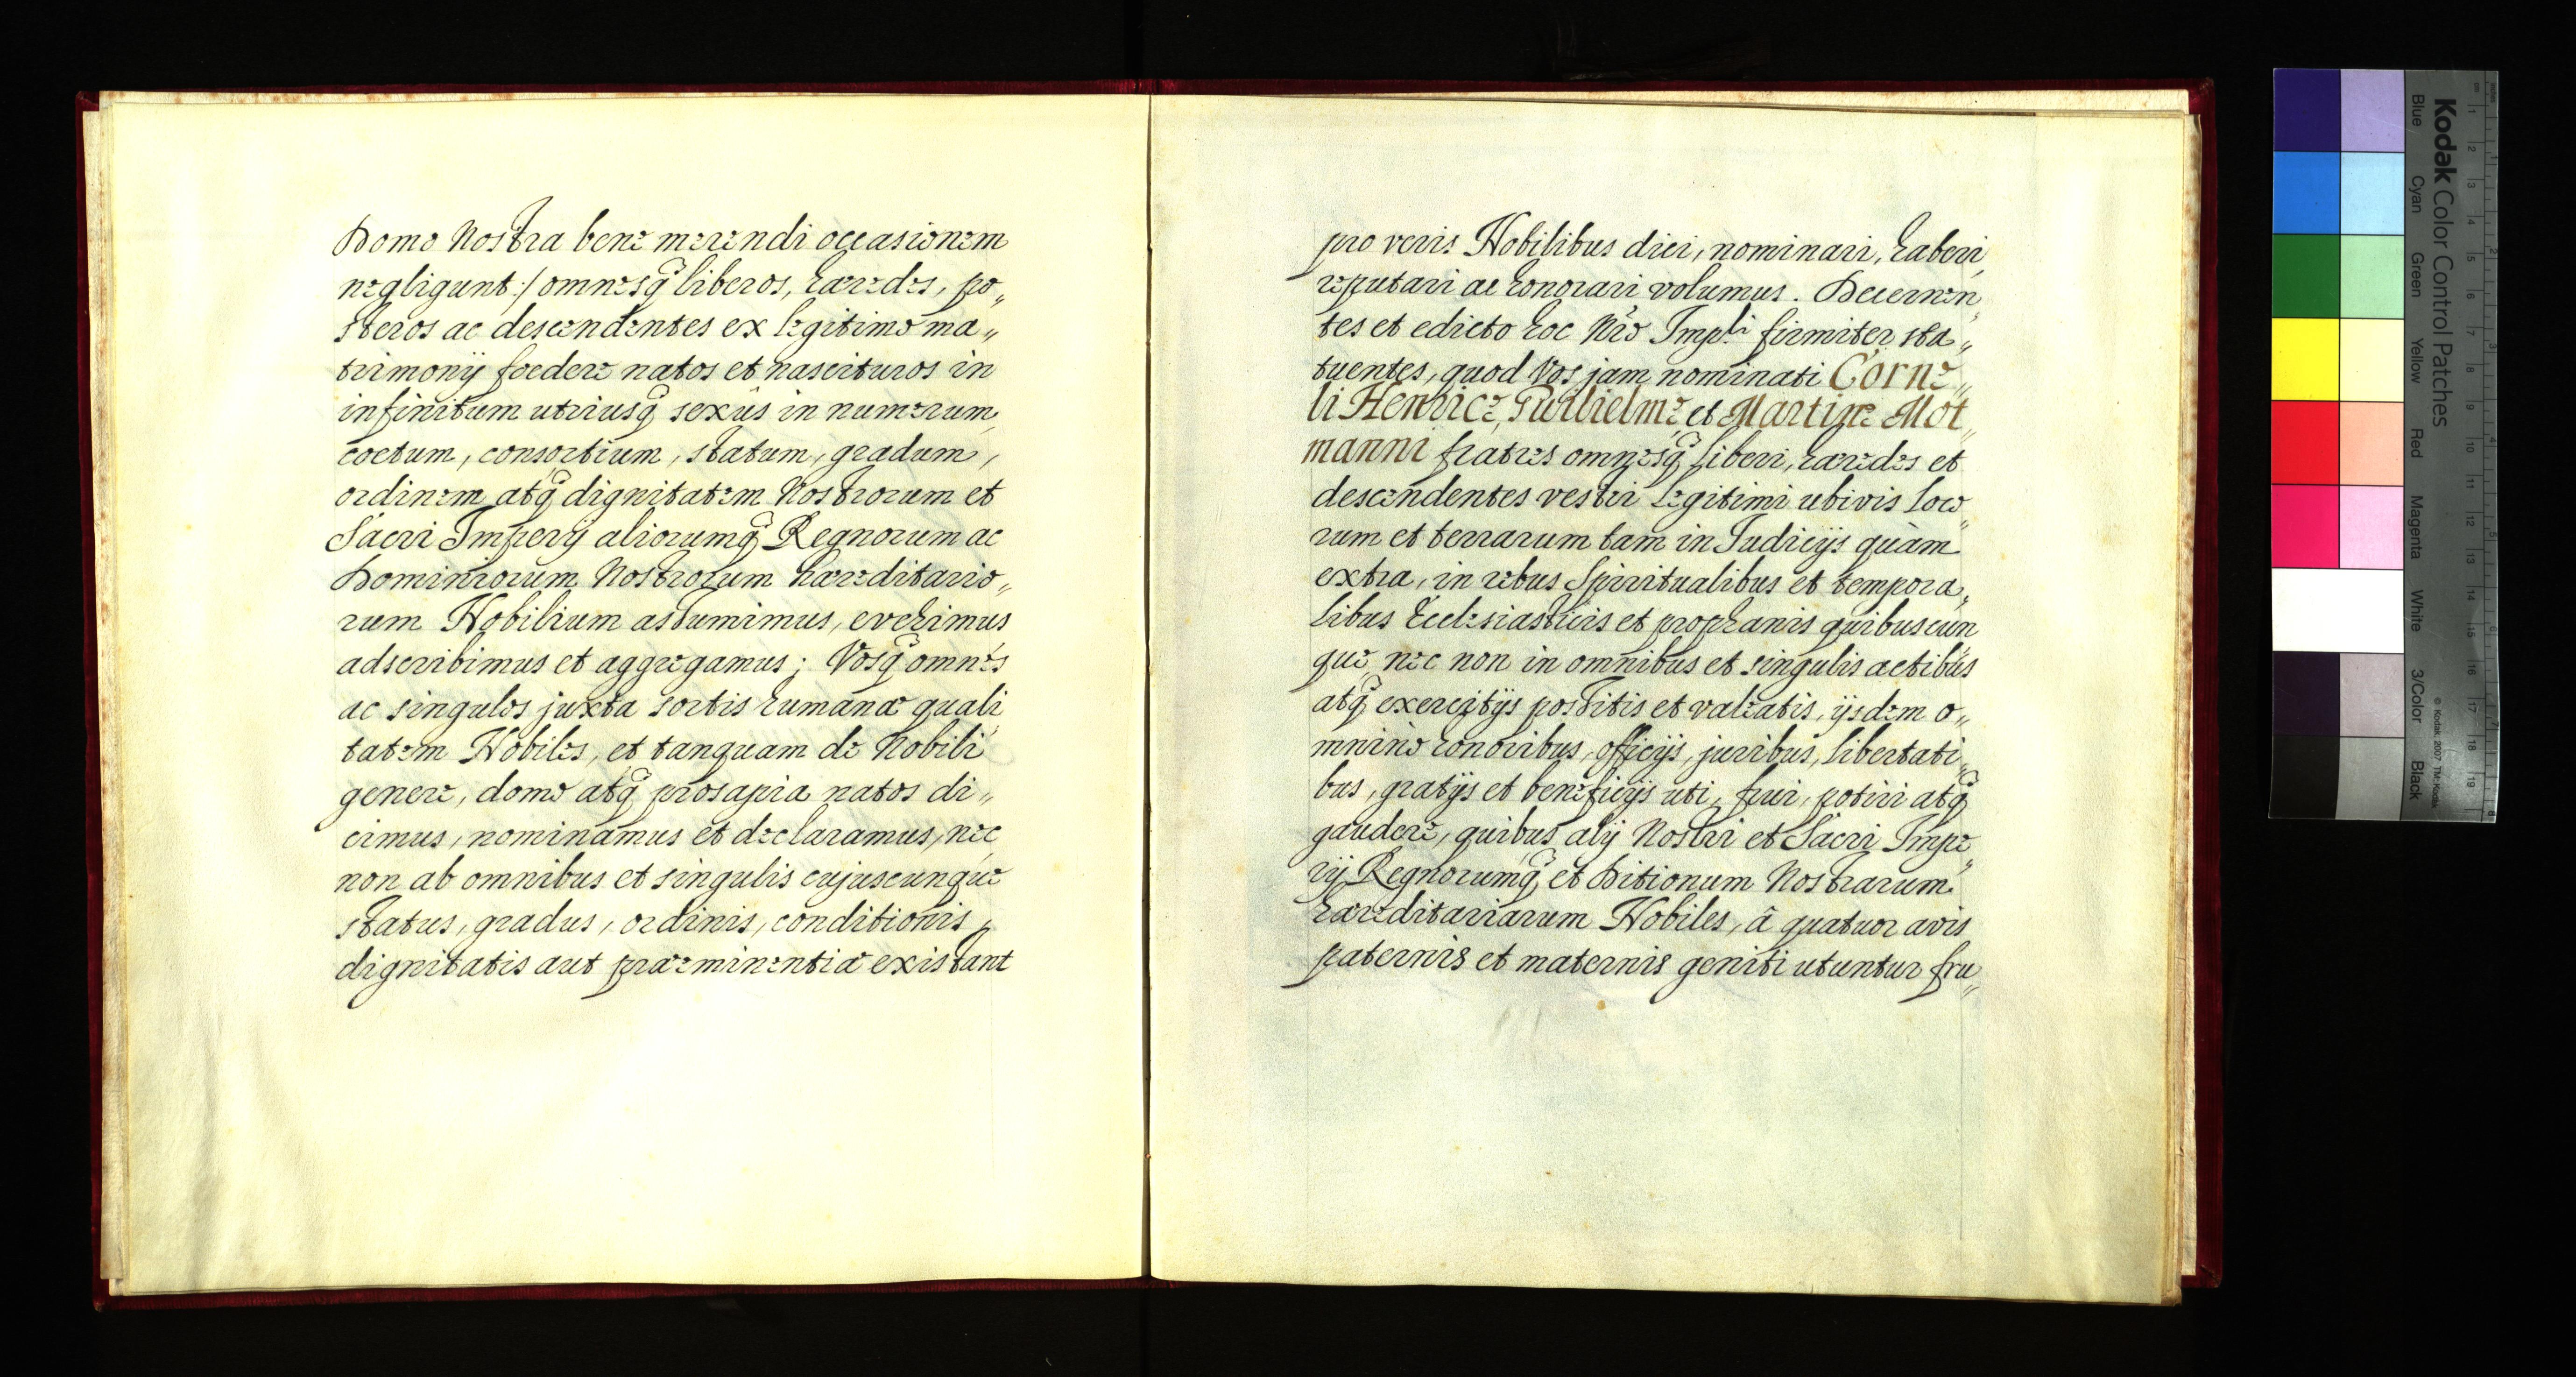 Domo Nostra bene merendi occasionem
negligunt:/ omnesq̃ liberos, hæredes, po„
steros ac descendentes ex legitimo ma„
trimonÿ foedere natos et nascituros in
infinitum utriusq̃ sexûs in numerum,
coetum, consortium, statum, gradum,
ordinem atq̃ dignitatem Nostrorum et
Sacri Imperÿ aliorumq̃ Regnorum ac
Dominiorum Nostrorum hæreditario„
rum Nobilium assumimus, evehimus
adscribimus et aggregamus; Vosq̃ omnes
ac singulos juxta sortis humanæ quali„
tatem Nobiles, et tanquam de Nobili
genere, domo atq̃ prosapia natos di„
cimus, nominamus et declaramus, nec
non ab omnibus et singulis cujuscunque
status, gradus, ordinis, conditionis,
dignitatis aut præeminentiæ existant
pro veris Nobilibus dici, nominari, haberi,
reputari ac honorari volumus. Decernen„
tes et edicto hoc Nr̃o Imp̃li firmiter sta„
tuentes, quod Vos jam nominati Corne„
li Henrice, Guilielme et Martine Mot„
manni fratres omnesq̃ liberi, hæredes et
descendentes vestri legitimi ubivis loco„
rum et terrarum tam in Judicÿs quàm
extra, in rebus Spiritualibus et tempora„
libus Ecclesiasticis et prophanis quibuscun„
que, nec non in omnibus et singulis actibus
atq̃ exercitÿs positis et valeatis, ÿsdem o„
mnino honoribus, officÿs, juribus, libertati„
bus, gratÿs et beneficÿs uti, frui, potiri atq̃
gaudere, quibus alÿ Nostri et Sacri Impe„
rÿ Regnorumq̃ et Ditionum Nostrarum
hæreditariarum Nobiles, â quatuor avis
paternis et maternis geniti utuntur fru„
Kodak Color Control Patches
Blue Cyan Green Yellow Red Magenta White 3/Color Black
© Kodak, 2007 TM: Kodak
1 2 3 4 5 6 7 8 9 10 11 12 13 14 15 16 17 18 19